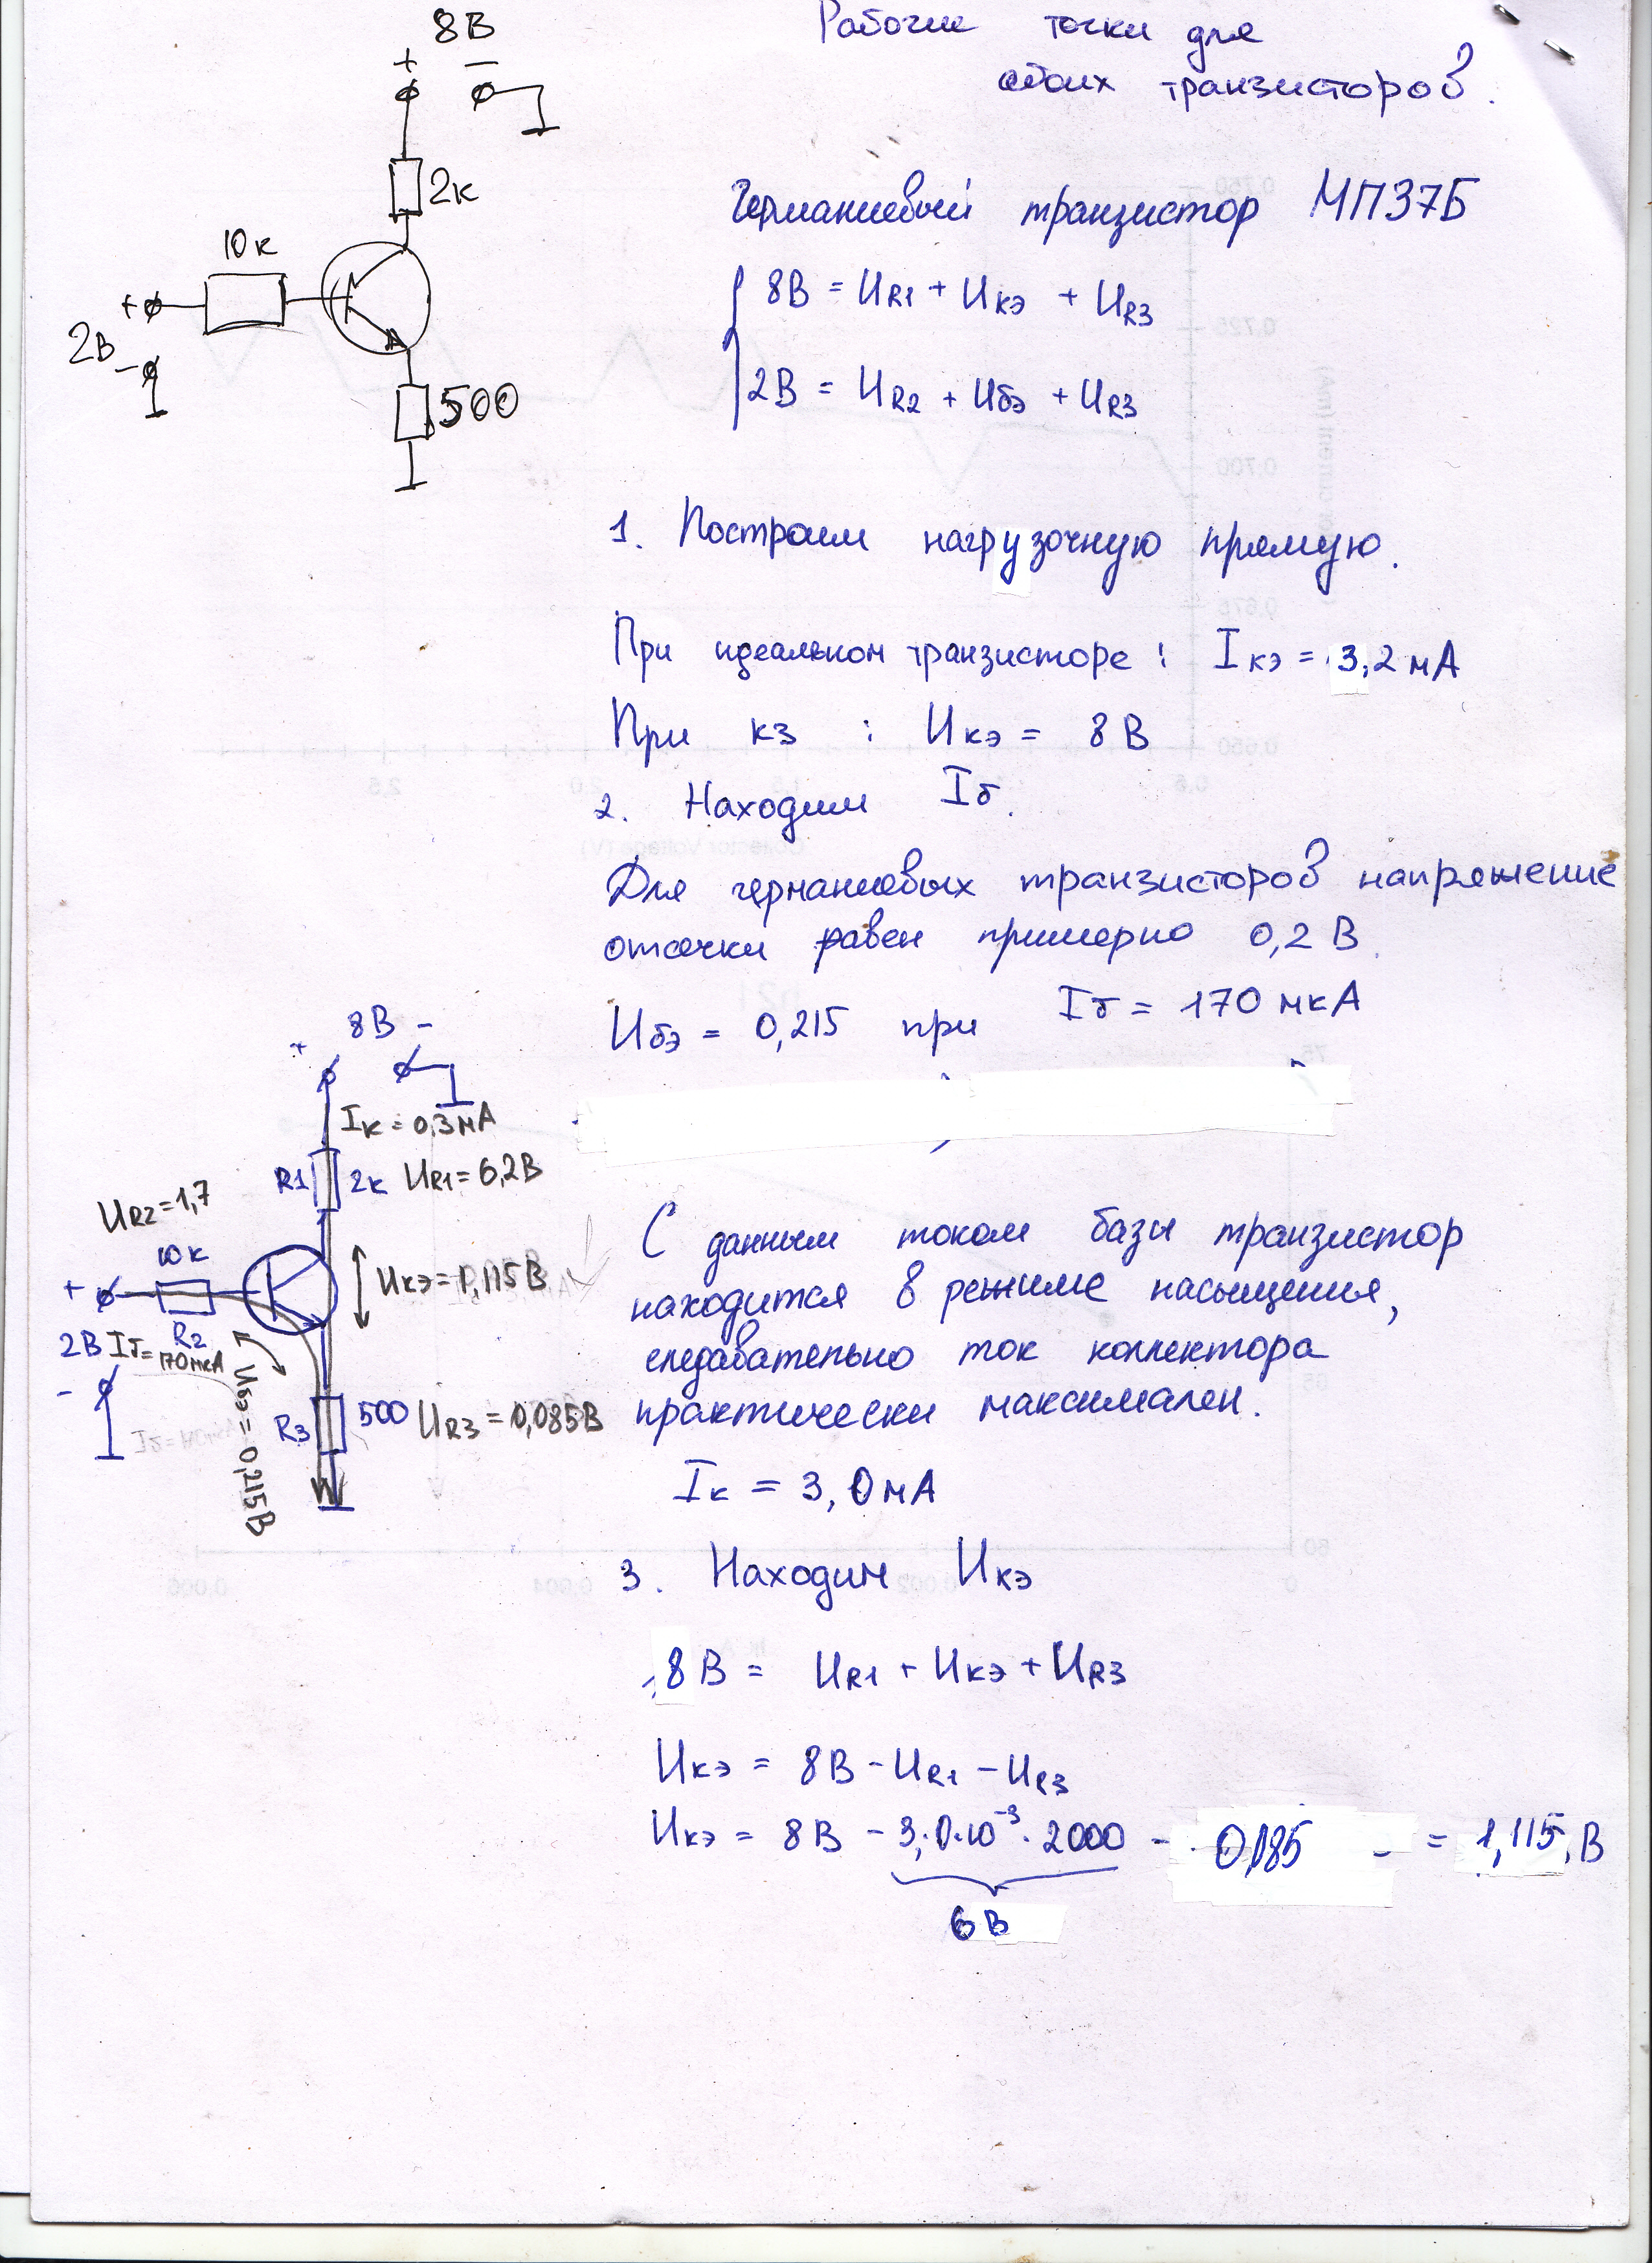 Рабочие точки для
обоих транзисторов.
8В
+ −
2к
10к
+
2В
−
500
Германиевый транзистор МП37Б
8В = UR1 + Uкэ + UR3
2В = UR2 + Uбэ + UR3
1. Построим нагрузочную прямую.
При идеальном транзисторе : Iкэ = 3,2 мА
При кз : Uкэ = 8 В
2. Находим Iб.
Для германиевых транзисторов напряжение
отсечки равен примерно 0,2 В.
Uбэ = 0,215 при Iб = 170 мкА
8В −
+
Iк = 0,3мА
R1 2к UR1 = 6,2В
UR2 = 1,7
10к
+
R2
Uкэ = 1,115В
2В Iб = 170мкА
−
Uбэ = 0,215В
R3 500 UR3 = 0,085В
С данным током базы транзистор
находится в режиме насыщения,
следавательно ток коллектора
практически максимален.
Iк = 3,0мА
3. Находим Uкэ
8В = UR1 + Uкэ + UR3
Uкэ = 8В − UR1 − UR3
Uкэ = 8В − 3,0·10⁻³ · 2000 − 0,185 = 1,115 В
6В